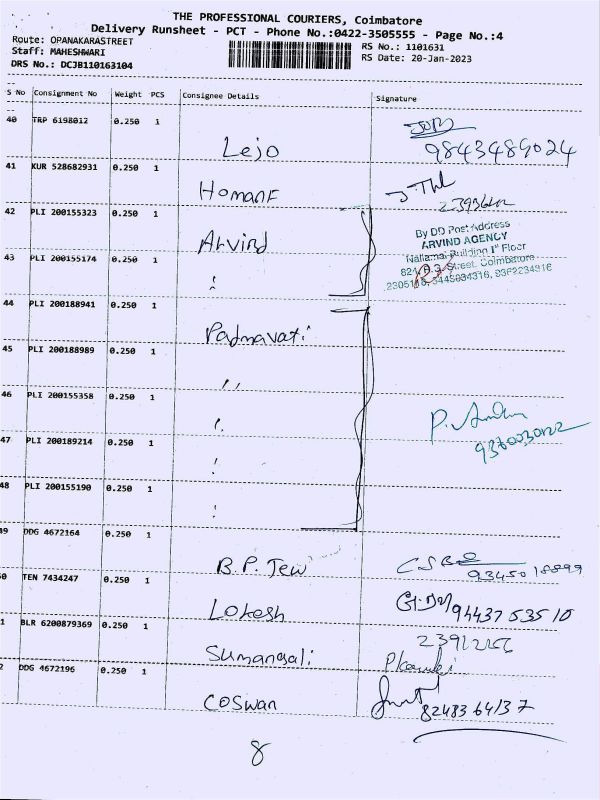 THE PROFESSIONAL COURIERS, Coimbatore
Delivery Runsheet - PCT - Phone No.:0422-3505555 - Page No.:4
Route: OPANAKARASTREET
Staff: MAHESHWARI
DRS No.: DCJB110163104
RS No.: 1101631
RS Date: 20-Jan-2023
S No Consignment No Weight PCS Consignee Details Signature
40 TRP 6198012 0.250 1
Lejo 9843489024
41 KUR 528682931 0.250 1
Homane
42 PLI 200155323 0.250 1
Arvind
By DD Post Address
ARVIND AGENCY
Nallamai Building 1st Floor
Street, Coimbatore
9362234916
43 PLI 200155174 0.250 1
44 PLI 200188941 0.250 1
Padmavati
45 PLI 200188989 0.250 1
"
46 PLI 200155358 0.250 1
47 PLI 200189214 0.250 1
48 PLI 200155190 0.250 1
49 DDG 4672164 0.250 1
B.P. Jew
0 TEN 7434247 0.250 1
Lokesh 94437 53510
1 BLR 6200879369 0.250 1
Sumangali
2 DDG 4672196 0.250 1
Coswan 8248364137
8